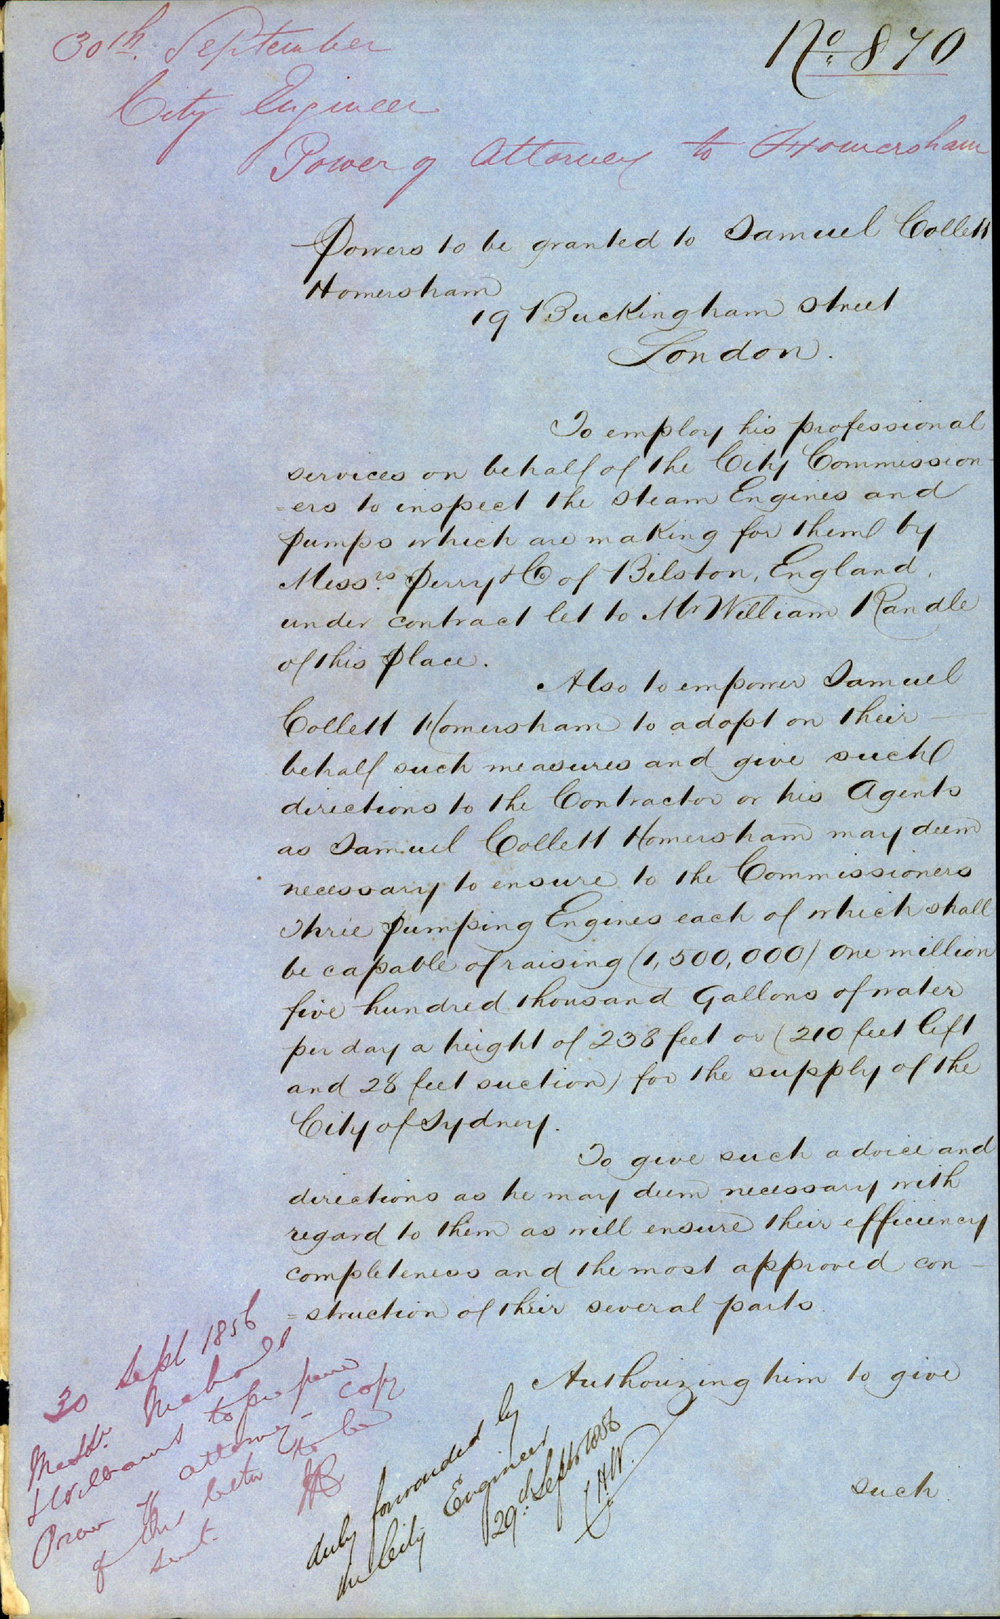 30th. September
No. 870
City Engineer
Power of Attorney to Homersham
Powers to be granted to Samuel Collett
Homersham
19 Buckingham Street
London.
To employ his professional
services on behalf of the City Commission-
=ers to inspect the Steam Engines and
Pumps which are making for them by
Messrs. Perry & Co of Bilston, England,
under contract let to Mr William Randle
of this Place.
Also to empower Samuel
Collett Homersham to adopt on their
behalf such measures and give such
directions to the Contractor or his Agents
as Samuel Collett Homersham may deem
necessary to ensure to the Commissioners
three Pumping Engines each of which shall
be capable of raising (1,500,000) One million
five hundred thousand Gallons of water
per day a height of 238 feet or (210 feet lift
and 28 feet suction) for the supply of the
City of Sydney.
To give such advice and
directions as he may deem necessary with
regard to them as will ensure their efficiency
completeness and the most approved con-
=struction of their several parts.
Authorizing him to give
such
30 Sept 1856
Messrs.
& Williams to prepare
Power of attorney - copy
of this letter to be
sent.
duly forwarded by
the City Engineer
29th. Septr 1856